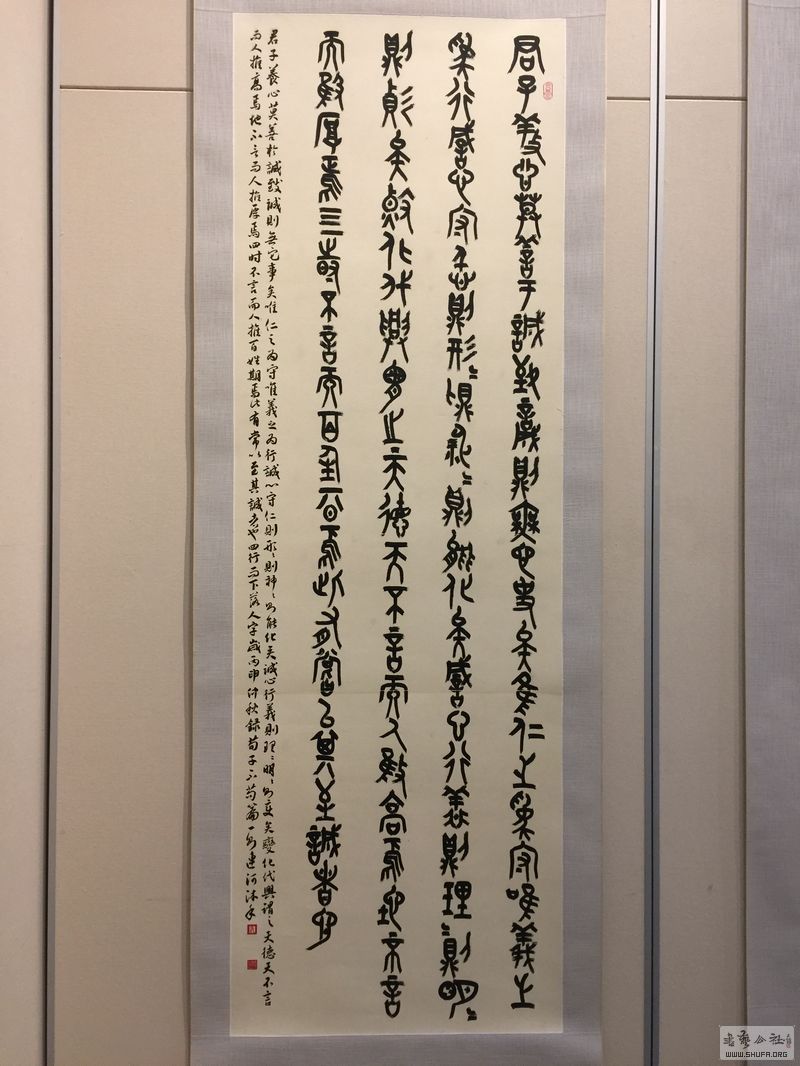 君子養心莫善于誠致誠則無它事矣隹仁之為守唯義之
為行誠心守仁則形=則神=則能化矣誠心行義則理=則明=
則變矣變化代興胃之天德天不言而人推高焉地不言
而推厚焉三時不言而百姓期焉此有常以其至誠者也
君子養心莫善於誠致誠則無它事矣唯仁之為守唯義之為行誠心守仁則形、則神、則能化矣誠心行義則理、則明、則變矣變化代興謂之天德天不言
而人推高焉地不言而人推厚焉四时不言而人推百姓期焉此有常以至其誠者也四行而下落人字歲丙申仲秋錄荀子不苟篇一則連河沐手
書藝公社
WWW.SHUFA.ORG